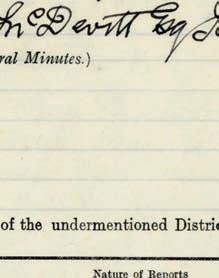 McDevitt Esq J
ral Minutes.)
of the undermentioned Distric
Nature of Reports